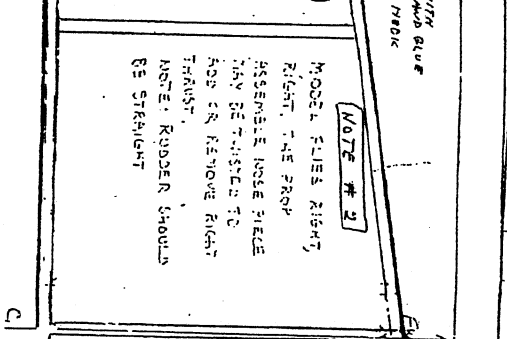 ITH
AND GLUE
NOTE # 2
MODEL FLIES RIGHT,
RIGHT. THE PROP
ASSEMBLE NOSE PIECE
MAY BE TWISTED TO
ADD OR REMOVE RIGHT
THRUST.
NOTE: RUDDER SHOULD
BE STRAIGHT